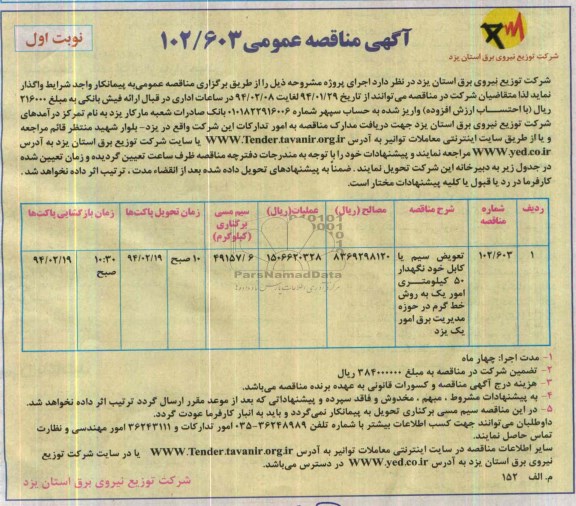 آگهی مناقصه عمومی ۱۰۲/۶۰۳
نوبت اول
شرکت توزیع نیروی برق استان یزد
شرکت توزیع نیروی برق استان یزد در نظر دارد اجرای پروژه مشروحه ذیل را از طریق برگزاری مناقصه عمومی به پیمانکار واجد شرایط واگذار
نماید لذا متقاضیان شرکت در مناقصه می‌توانند از تاریخ ۹۴/۰۱/۲۹ لغایت ۹۴/۰۲/۰۸ در ساعات اداری در قبال ارائه فیش بانکی به مبلغ ۲۱۶۰۰۰
ریال (با احتساب ارزش افزوده) واریز شده به حساب سپهر شماره ۰۱۰۱۸۲۲۹۱۶۰۰۶ بانک صادرات شعبه مارکار یزد به نام تمرکز درآمدهای
شرکت توزیع نیروی برق استان یزد جهت دریافت مدارک مناقصه به امور تدارکات این شرکت واقع در یزد- بلوار شهید منتظر قائم مراجعه
و یا از طریق سایت اینترنتی معاملات توانیر به آدرس WWW.Tender.tavanir.org.ir یا سایت شرکت توزیع برق استان یزد به آدرس
WWW.yed.co.ir مراجعه نمایند و پیشنهادات خود را با توجه به مندرجات دفترچه مناقصه ظرف ساعت تعیین گردیده و زمان تعیین شده
در جدول زیر به دبیرخانه این شرکت تحویل نمایند . ضمناً به پیشنهادهای تحویل داده شده بعد از انقضاء مدت ، ترتیب اثر داده نخواهد شد .
کارفرما در رد یا قبول یا کلیه پیشنهادات مختار است.
ردیف شماره مناقصه شرح مناقصه مصالح (ریال) عملیات(ریال) سیم مسی برکناری (کیلوگرم) زمان تحویل پاکت‌ها زمان بازگشایی پاکت‌ها
۱ ۱۰۲/۶۰۳ تعویض سیم با ۸۳۶۹۲۹۸۱۲۰ ۱۵۰۶۶۲۰۳۲۸ ۴۹۱۵۷/۶ ۱۰ صبح ۹۴/۰۲/۱۹ ۱۰:۳۰ صبح ۹۴/۰۲/۱۹
کابل خود نگهدار
۵۰ کیلومتری
امور یک به روش
خط گرم در حوزه
مدیریت برق امور
یک یزد
ParsNamadData
۱- مدت اجرا: چهار ماه
۲- تضمین شرکت در مناقصه به مبلغ ۳۸۴۰۰۰۰۰۰ ریال
۳- هزینه درج آگهی مناقصه و کسورات قانونی به عهده برنده مناقصه می‌باشد.
۴- به پیشنهادات مشروط ، مبهم ، مخدوش و فاقد سپرده و پیشنهاداتی که بعد از موعد مقرر ارسال گردد ترتیب اثر داده نخواهد شد.
۵- در این مناقصه سیم مسی برکناری تحویل به پیمانکار نمی‌گردد و باید به انبار کارفرما عودت گردد.
داوطلبان می‌توانند جهت کسب اطلاعات بیشتر با شماره تلفن ۳۶۲۴۸۹۸۹-۰۳۵ امور تدارکات و ۳۶۲۴۳۱۱۱ امور مهندسی و نظارت
تماس حاصل نمایند.
سایر اطلاعات مناقصه در سایت اینترنتی معاملات توانیر به آدرس WWW.Tender.tavanir.org.ir یا در سایت شرکت توزیع
نیروی برق استان یزد به آدرس WWW.yed.co.ir در دسترس می‌باشد.
م. الف ۱۵۲
شرکت توزیع نیروی برق استان یزد